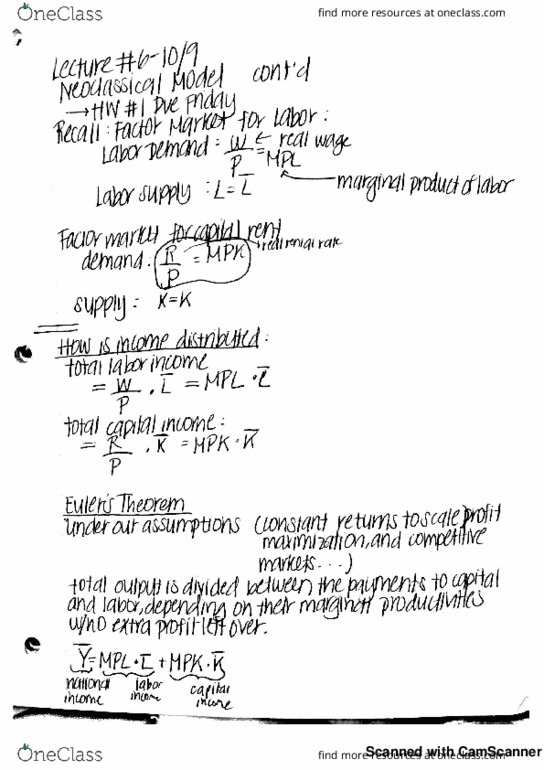 OneClass
find more resources at oneclass.com
Lecture #6-10/9
Neoclassical Model cont'd
→ HW #1 Due Friday
Recall: Factor Market for Labor:
Labor Demand: W/P = MPL ← real wage
marginal product of labor
Labor supply: L = L̅
Factor market for capital rent
demand: R/P = MPK real rental rate
supply: K=K
How is income distributed:
total labor income
= W/P · L̅ = MPL · L̅
total capital income:
= R/P · K̅ = MPK · K̅
Euler's Theorem
under our assumptions (constant returns to scale, profit
maximization, and competitive
markets...)
total output is divided between the payments to capital
and labor, depending on their marginal productivities
w/no extra profit left over.
Y̅ = MPL · L̅ + MPK · K̅
national income labor income capital income
OneClass
find more resources at oneclass.com
Scanned with CamScanner